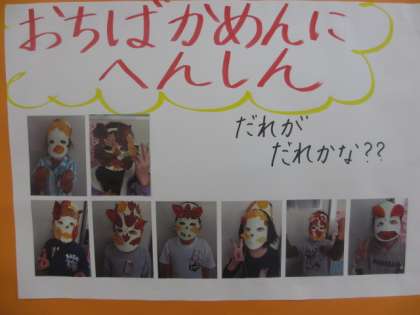 おちばかめんに
へんしん
だれが
だれかな??